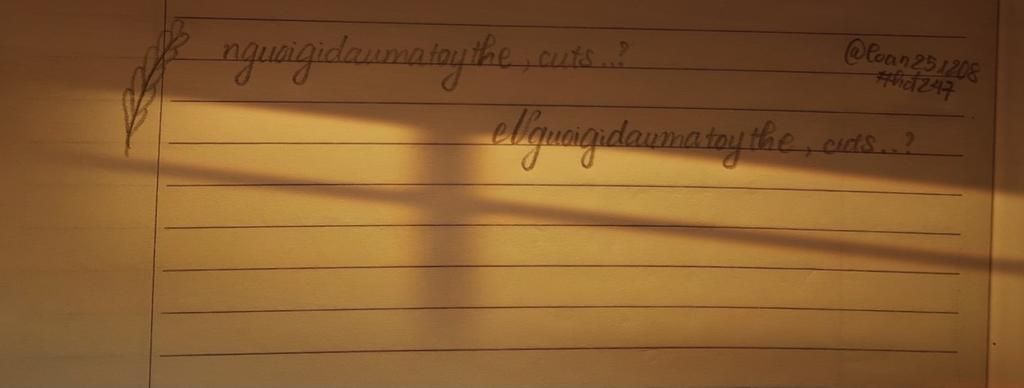 nguoigidaumatoythe, cuts..?
@loan251208
#hot247
Nguoigidaumatoythe, cuts..?